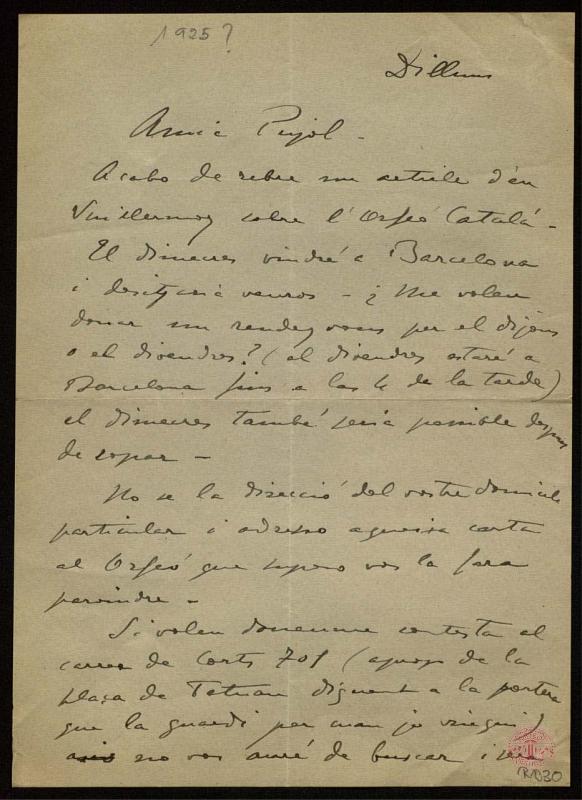 1925?
Dilluns
Amic Pujol -
Acabo de rebre un article d'en
Vuillermoz sobre l'Orfeó Català -
El dimecres vindré a Barcelona
i desitjaria veuros - ¿Me volen
donar un rendez vous per el dijous
o el divendres? (el divendres estaré a
Barcelona fins a las 4 de la tarde)
el dimecres també seria possible despues
de sopar -
No se la direcció del vostre domicili
particular i adresso aqueixa carta
al Orfeó que supero vos la fara
parvindre -
Si volen donarme contesta al
carrer de Corts 701 (aprop de la
plaça de Tetuan diguent a la portera
que la guardi per cuan jo vingui)
no vos auré de buscar i